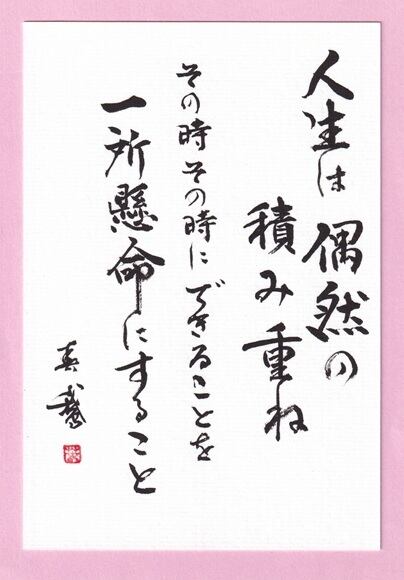 人生は偶然の
積み重ね
その時その時にできることを
一所懸命にすること